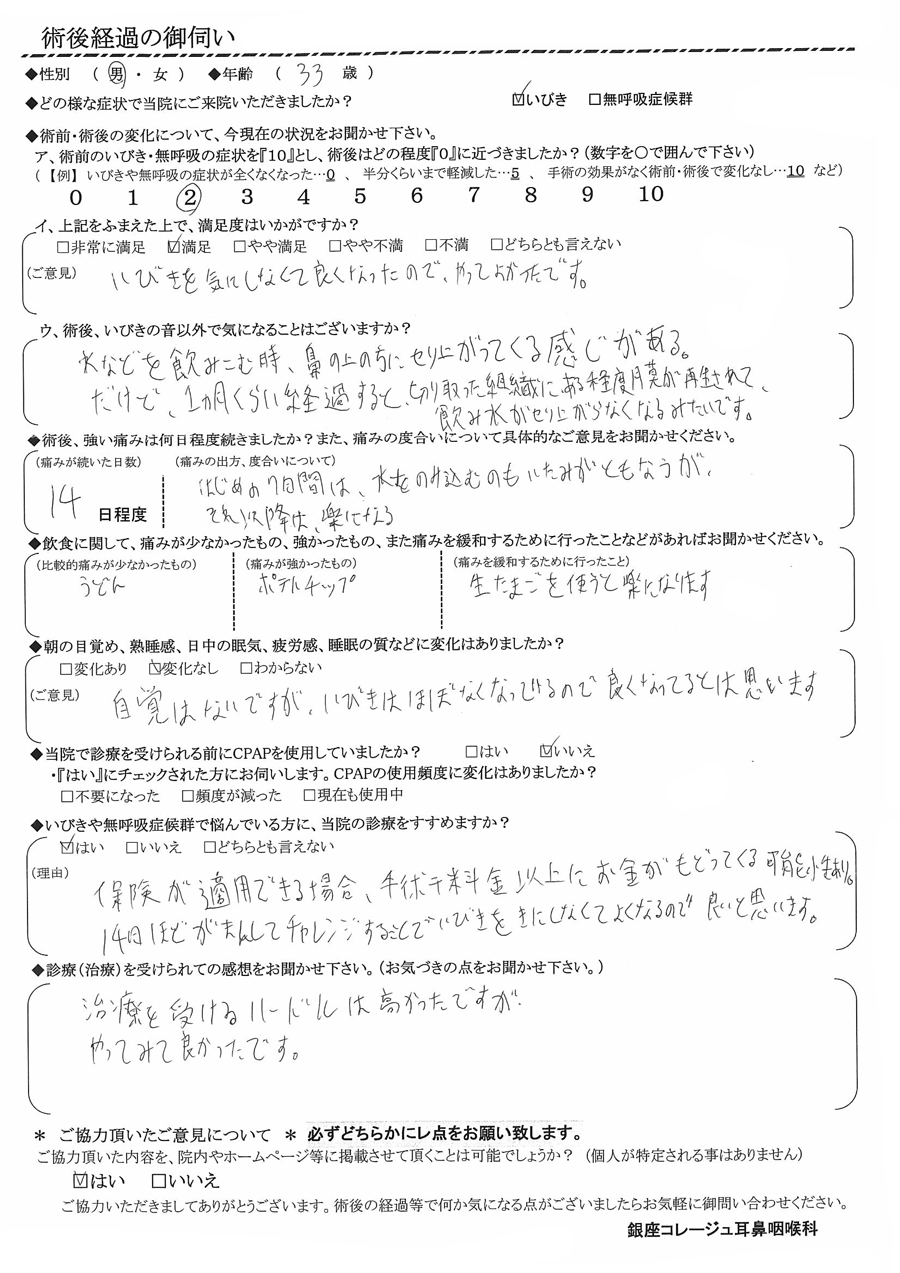 術後経過の御伺い
◆性別 （ 男 ・ 女 ） ◆年齢 （ 33 歳 ）
◆どの様な症状で当院にご来院いただきましたか？ ☑いびき □無呼吸症候群
◆術前・術後の変化について、今現在の状況をお聞かせ下さい。
ア、術前のいびき・無呼吸の症状を『10』とし、術後はどの程度『0』に近づきましたか？（数字を○で囲んで下さい）
（【例】いびきや無呼吸の症状が全くなくなった…0 、 半分くらいまで軽減した…5 、 手術の効果がなく術前・術後で変化なし…10 など）
0 1 2 3 4 5 6 7 8 9 10
イ、上記をふまえた上で、満足度はいかがですか？
□非常に満足 ☑満足 □やや満足 □やや不満 □不満 □どちらとも言えない
（ご意見） いびきを気にしなくて良くなったので、やってよかったです。
ウ、術後、いびきの音以外で気になることはございますか？
水などを飲みこむ時、鼻の上の方にせり上がってくる感じがある。
だけど、1カ月くらい経過すると、切り取った組織にある程度月莫が再生されて、
飲み水がせり上がらなくなるみたいです。
◆術後、強い痛みは何日程度続きましたか？また、痛みの度合いについて具体的なご意見をお聞かせください。
（痛みが続いた日数） （痛みの出方、度合いについて）
14 日程度 はじめの7日間は、水をのみ込むのもいたみがともなうが、
それ以降は、楽になる
◆飲食に関して、痛みが少なかったもの、強かったもの、また痛みを緩和するために行ったことなどがあればお聞かせください。
（比較的痛みが少なかったもの） （痛みが強かったもの） （痛みを緩和するために行ったこと）
うどん ポテトチップ 生たまごを使うと楽になります
◆朝の目覚め、熟睡感、日中の眠気、疲労感、睡眠の質などに変化はありましたか？
□変化あり ☑変化なし □わからない
（ご意見） 自覚はないですが、いびきはほぼなくなっているので良くなってるとは思います
◆当院で診療を受けられる前にCPAPを使用していましたか？ □はい ☑いいえ
・『はい』にチェックされた方にお伺いします。CPAPの使用頻度に変化はありましたか？
□不要になった □頻度が減った □現在も使用中
◆いびきや無呼吸症候群で悩んでいる方に、当院の診療をすすめますか？
☑はい □いいえ □どちらとも言えない
（理由） 保険が適用できる場合、手術料金以上にお金がもどってくる可能性あり。
14日ほどがまんしてチャレンジすることでいびきをきにしなくてよくなるので良いと思います。
◆診療（治療）を受けられての感想をお聞かせ下さい。（お気づきの点をお聞かせ下さい。）
治療を受けるハードルは高かったですが
やってみて良かったです。
＊ ご協力頂いたご意見について ＊ 必ずどちらかにレ点をお願い致します。
ご協力頂いた内容を、院内やホームページ等に掲載させて頂くことは可能でしょうか？（個人が特定される事はありません）
☑はい □いいえ
ご協力いただきましてありがとうございます。術後の経過等で何か気になる点がございましたらお気軽に御問い合わせください。
銀座コレージュ耳鼻咽喉科